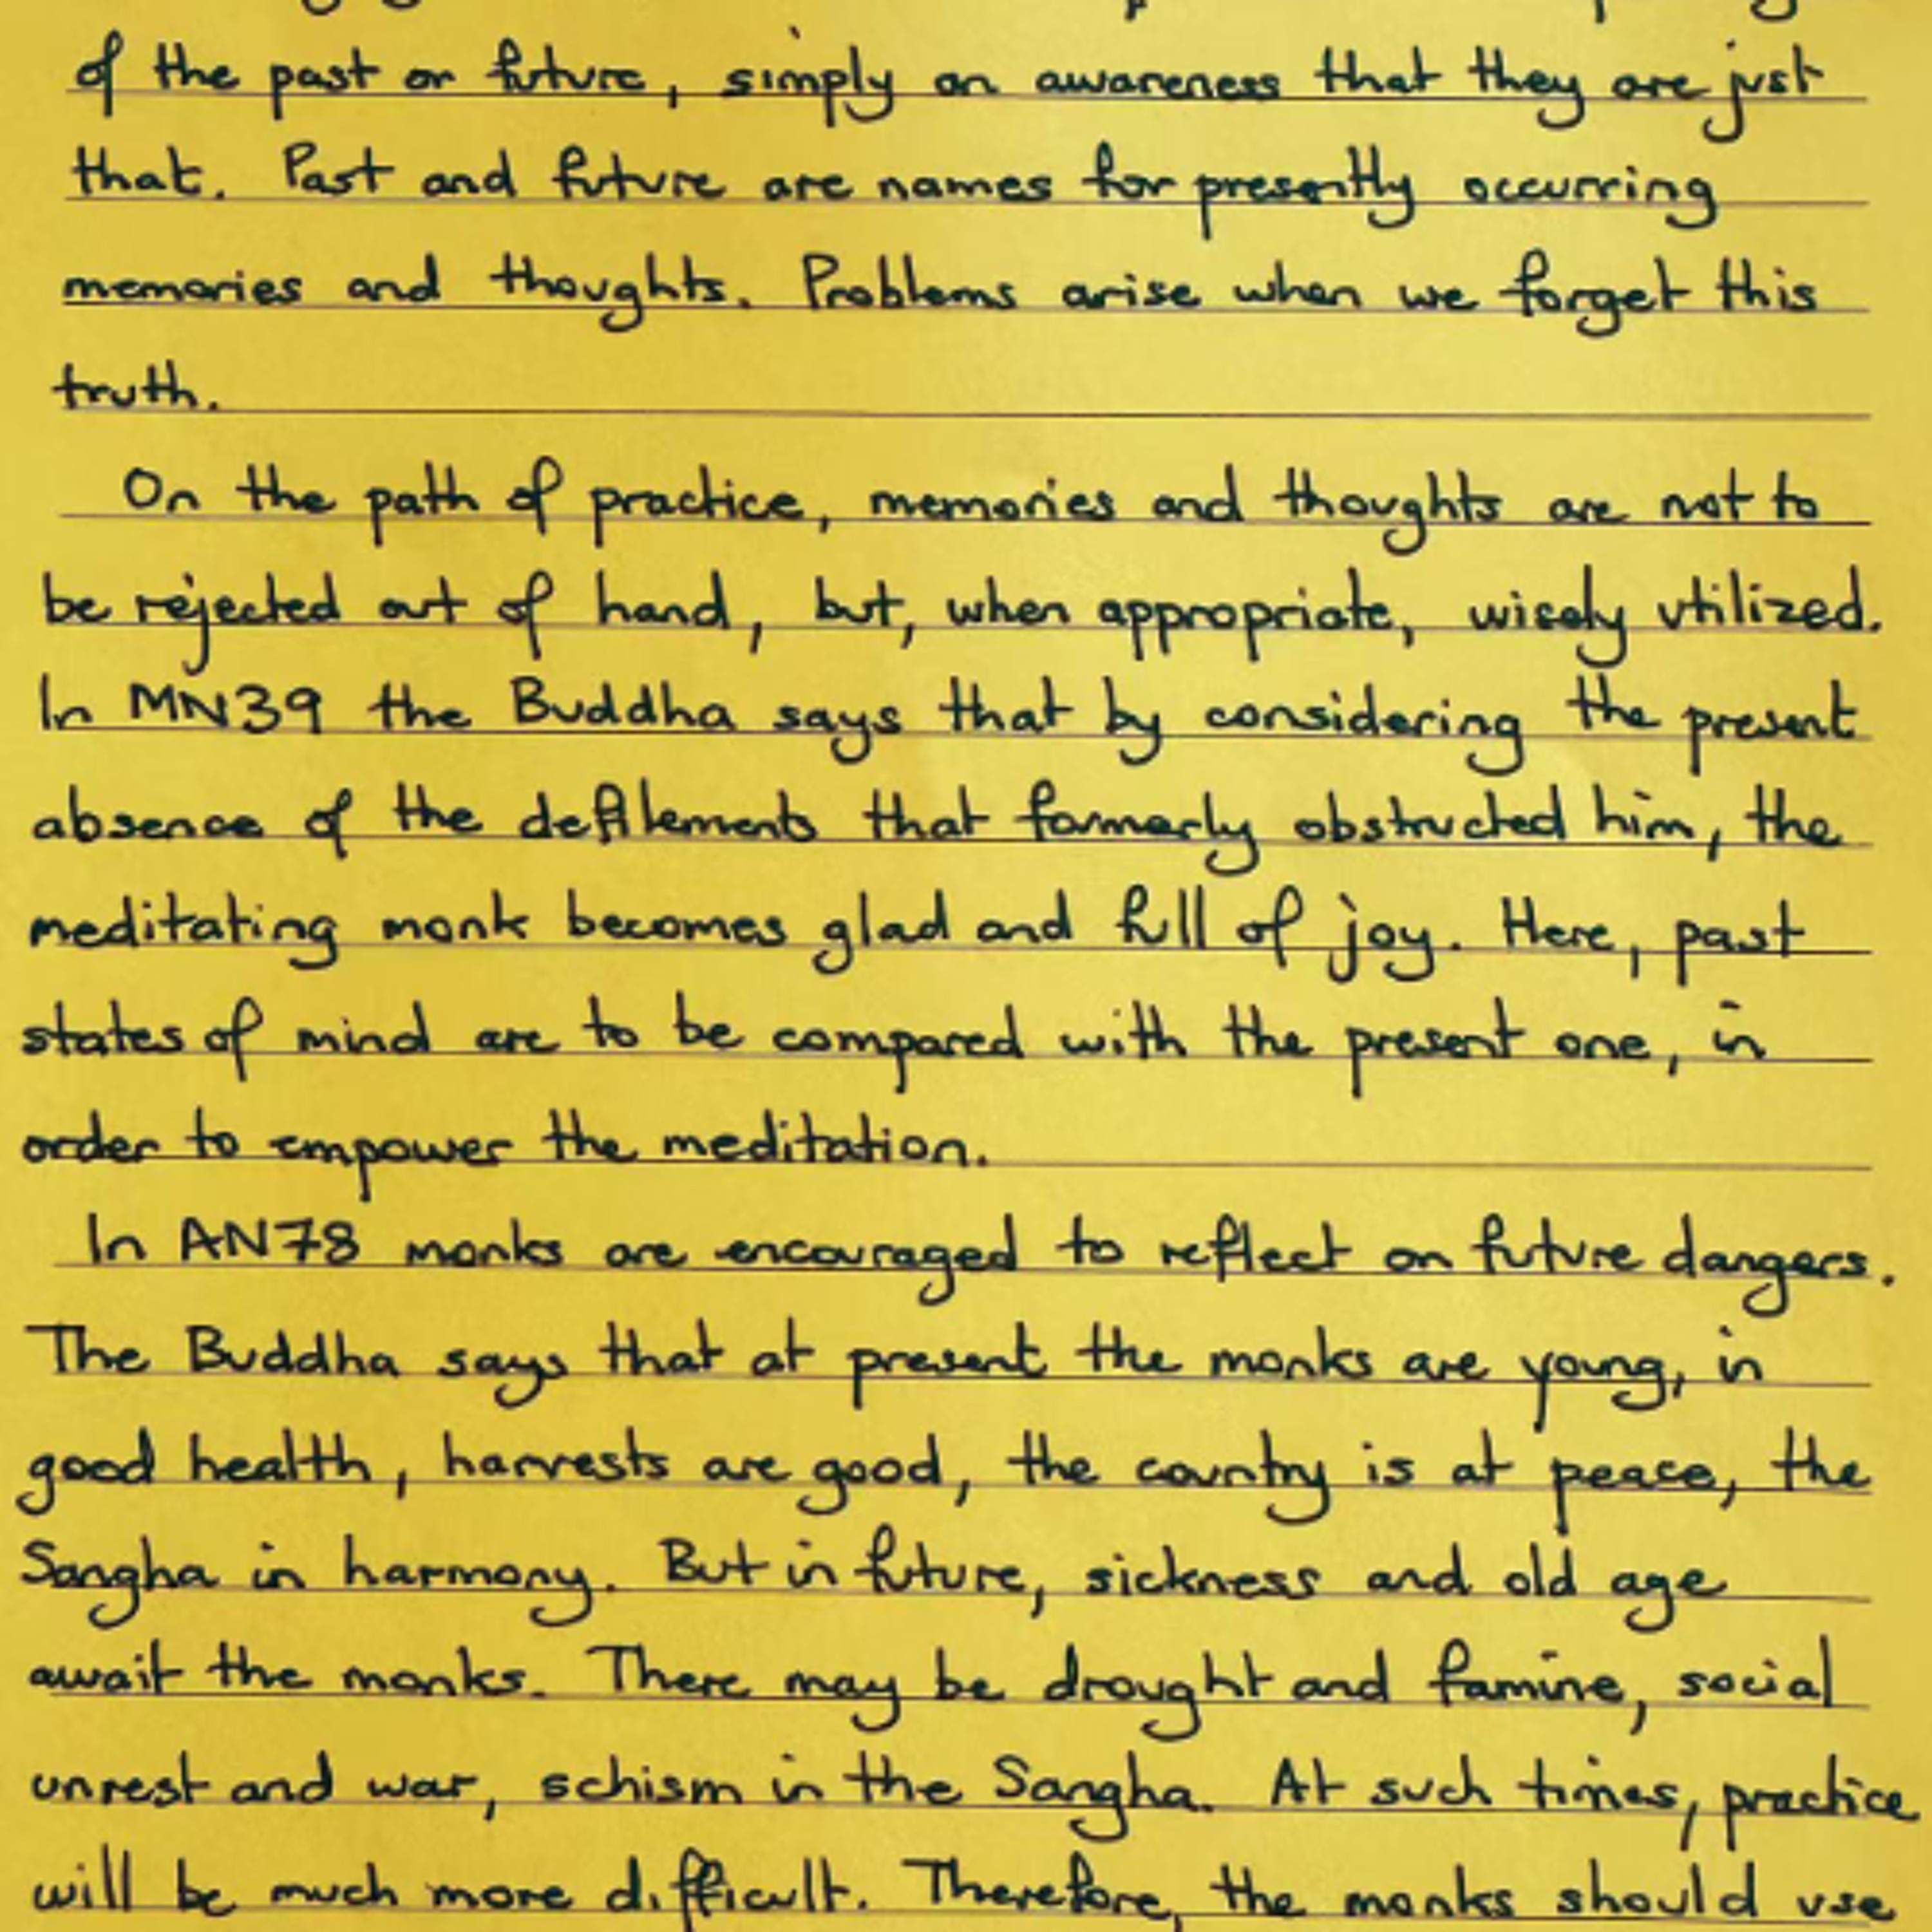 of the past or future, simply an awareness that they are just
that. Past and future are names for presently occurring
memories and thoughts. Problems arise when we forget this
truth.
On the path of practice, memories and thoughts are not to
be rejected out of hand, but, when appropriate, wisely utilized.
In MN39 the Buddha says that by considering the present
absence of the defilements that formerly obstructed him, the
meditating monk becomes glad and full of joy. Here, past
states of mind are to be compared with the present one, in
order to empower the meditation.
In AN78 monks are encouraged to reflect on future dangers.
The Buddha says that at present the monks are young, in
good health, harvests are good, the country is at peace, the
Sangha in harmony. But in future, sickness and old age
await the monks. There may be drought and famine, social
unrest and war, schism in the Sangha. At such times, practice
will be much more difficult. Therefore, the monks should use